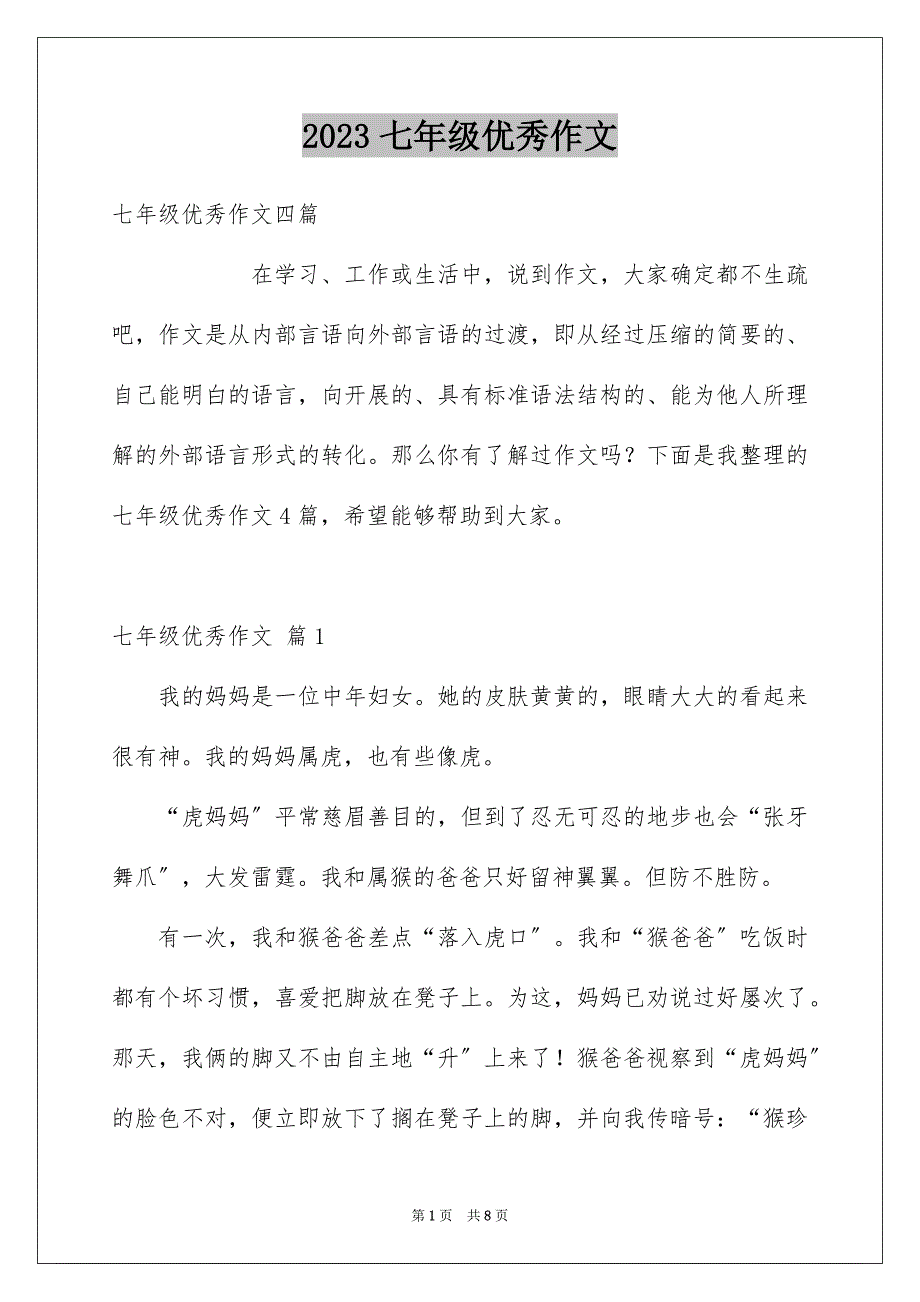 2023七年级优秀作文
七年级优秀作文四篇
在学习、工作或生活中，说到作文，大家确定都不生疏
吧，作文是从内部言语向外部言语的过渡，即从经过压缩的简要的、
自己能明白的语言，向开展的、具有标准语法结构的、能为他人所理
解的外部语言形式的转化。那么你有了解过作文吗？下面是我整理的
七年级优秀作文4篇，希望能够帮助到大家。
七年级优秀作文 篇1
我的妈妈是一位中年妇女。她的皮肤黄黄的，眼睛大大的看起来
很有神。我的妈妈属虎，也有些像虎。
“虎妈妈〞平常慈眉善目的，但到了忍无可忍的地步也会“张牙
舞爪〞，大发雷霆。我和属猴的爸爸只好留神翼翼。但防不胜防。
有一次，我和猴爸爸差点“落入虎口〞。我和“猴爸爸〞吃饭时
都有个坏习惯，喜爱把脚放在凳子上。为这，妈妈已劝说过好屡次了。
那天，我俩的脚又不由自主地“升〞上来了！猴爸爸视察到“虎妈妈〞
的脸色不对，便立即放下了搁在凳子上的脚，并向我传暗号：“猴珍
第1页 共8页